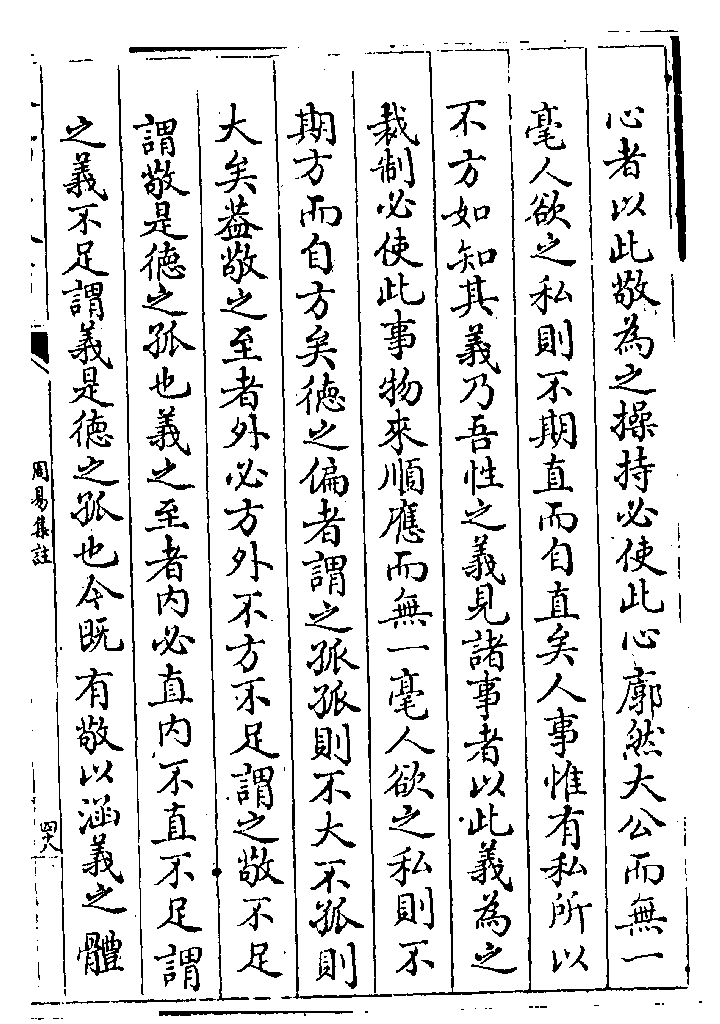 心者以此敬為之操持必使此心廓然大公而無一
毫人欲之私則不期直而自直矣人事惟有私所以
不方如知其義乃吾性之義見諸事者以此義為之
裁制必使此事物來順應而無一毫人欲之私則不
期方而自方矣德之偏者謂之孤孤則不大不孤則
大矣葢敬之至者外必方外不方不足謂之敬不足
謂敬是德之孤也義之至者內必直內不直不足謂
之義不足謂義是德之孤也今既有敬以涵義之體
周易集註
四八